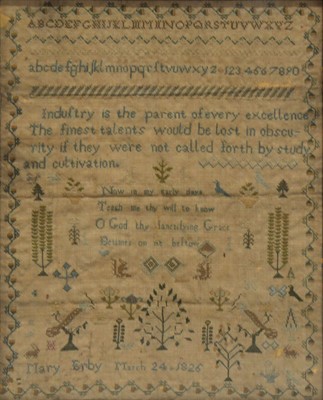 ABCDEFGHIJKLMNOPQRSTUVWXYZ
abcdefghijklmnopqrſstuvwxyz 1234567890
Induſtry is the parent of every excellence
The fineſt talents would be loſt in obscu-
rity if they were not called forth by study
and cultivation.
Now in my early days
Teach me thy will to know
O God thy Grace
Mary March 24 1826